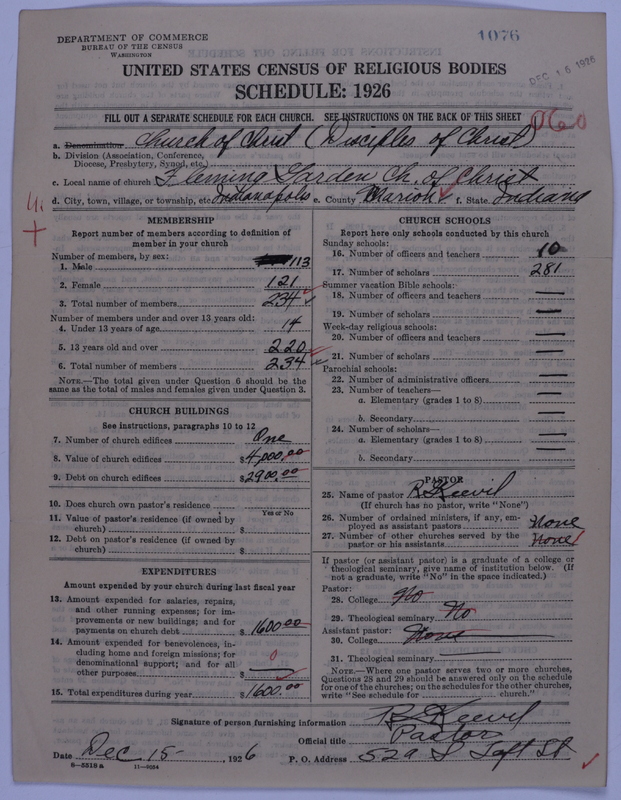 DEPARTMENT OF COMMERCE
BUREAU OF THE CENSUS
WASHINGTON
1076
DEC 16 1926
UNITED STATES CENSUS OF RELIGIOUS BODIES
SCHEDULE: 1926
FILL OUT A SEPARATE SCHEDULE FOR EACH CHURCH. SEE INSTRUCTIONS ON THE BACK OF THIS SHEET
060
a. Denomination Church of Christ (Disciples of Christ)
b. Division (Association, Conference, Diocese, Presbytery, Synod, etc.)
c. Local name of church Fleming Garden Ch. of Christ
d. City, town, village, or township, etc. Indianapolis e. County Marion f. State Indiana
MEMBERSHIP
Report number of members according to definition of member in your church
Number of members, by sex:
1. Male 113
2. Female 121
3. Total number of members 234
Number of members under and over 13 years old:
4. Under 13 years of age 14
5. 13 years old and over 220
6. Total number of members 234
NOTE.—The total given under Question 6 should be the same as the total of males and females given under Question 3.
CHURCH BUILDINGS
See instructions, paragraphs 10 to 12
7. Number of church edifices One
8. Value of church edifices $4,000.00
9. Debt on church edifices $2900.00
10. Does church own pastor's residence
Yes or No
11. Value of pastor's residence (if owned by church) $
12. Debt on pastor's residence (if owned by church) $
EXPENDITURES
Amount expended by your church during last fiscal year
13. Amount expended for salaries, repairs, and other running expenses; for improvements or new buildings; and for payments on church debt $1600.00
14. Amount expended for benevolences, including home and foreign missions; for denominational support; and for all other purposes $ 0
15. Total expenditures during year $1600.00
CHURCH SCHOOLS
Report here only schools conducted by this church
Sunday schools:
16. Number of officers and teachers 10
17. Number of scholars 281
Summer vacation Bible schools:
18. Number of officers and teachers —
19. Number of scholars —
Week-day religious schools:
20. Number of officers and teachers —
21. Number of scholars —
Parochial schools:
22. Number of administrative officers —
23. Number of teachers—
a. Elementary (grades 1 to 8) —
b. Secondary —
24. Number of scholars—
a. Elementary (grades 1 to 8) —
b. Secondary —
PASTOR
25. Name of pastor R Keevil
(If church has no pastor, write "None")
26. Number of ordained ministers, if any, employed as assistant pastors None
27. Number of other churches served by the pastor or his assistants None
If pastor (or assistant pastor) is a graduate of a college or theological seminary, give name of institution below. (If not a graduate, write "No" in the space indicated.)
Pastor:
28. College No
29. Theological seminary No
Assistant pastor:
30. College None
31. Theological seminary
NOTE.—Where one pastor serves two or more churches, Questions 28 and 29 should be answered only on the schedule for one of the churches; on the schedules for the other churches, write "See schedule for church."
Signature of person furnishing information R Keevil
Official title Pastor
Date Dec 15 , 1926 P. O. Address 529 S Taft St
8—5518a 11—9054